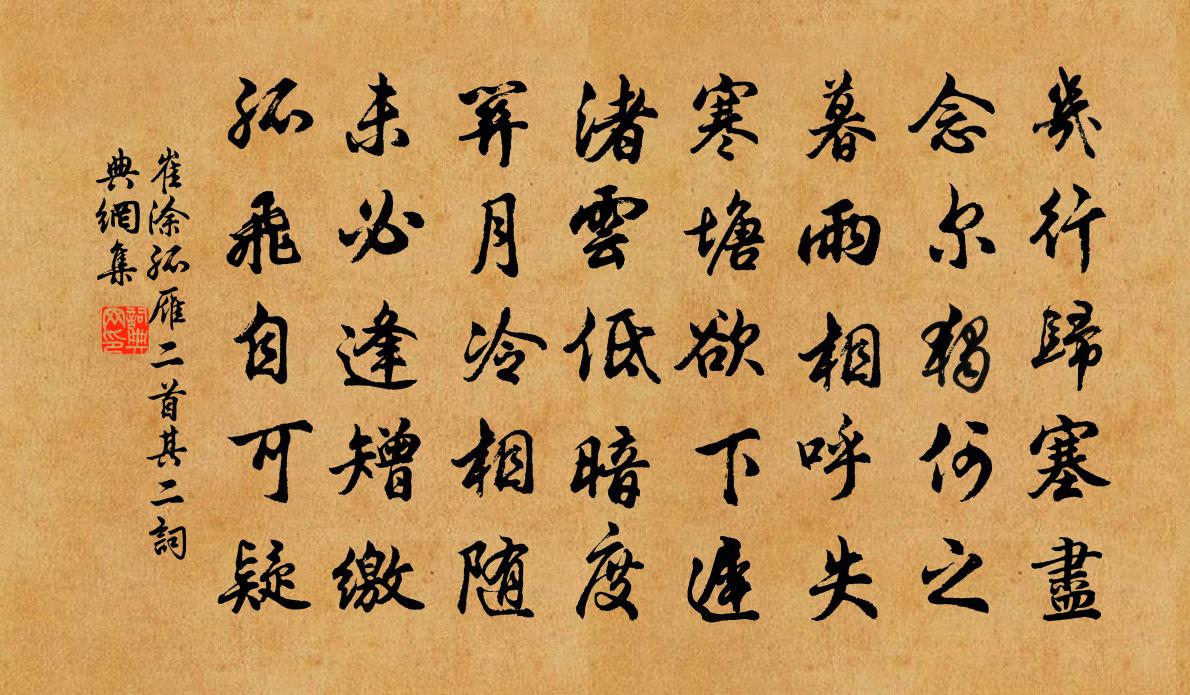 幾行歸塞盡
念尔獨何之
暮雨相呼失
寒塘欲下遲
渚雲低暗度
關月冷相随
未必逢矰繳
孤飛自可疑
崔涂孤雁二首其二詞
典網集
詞典
网印